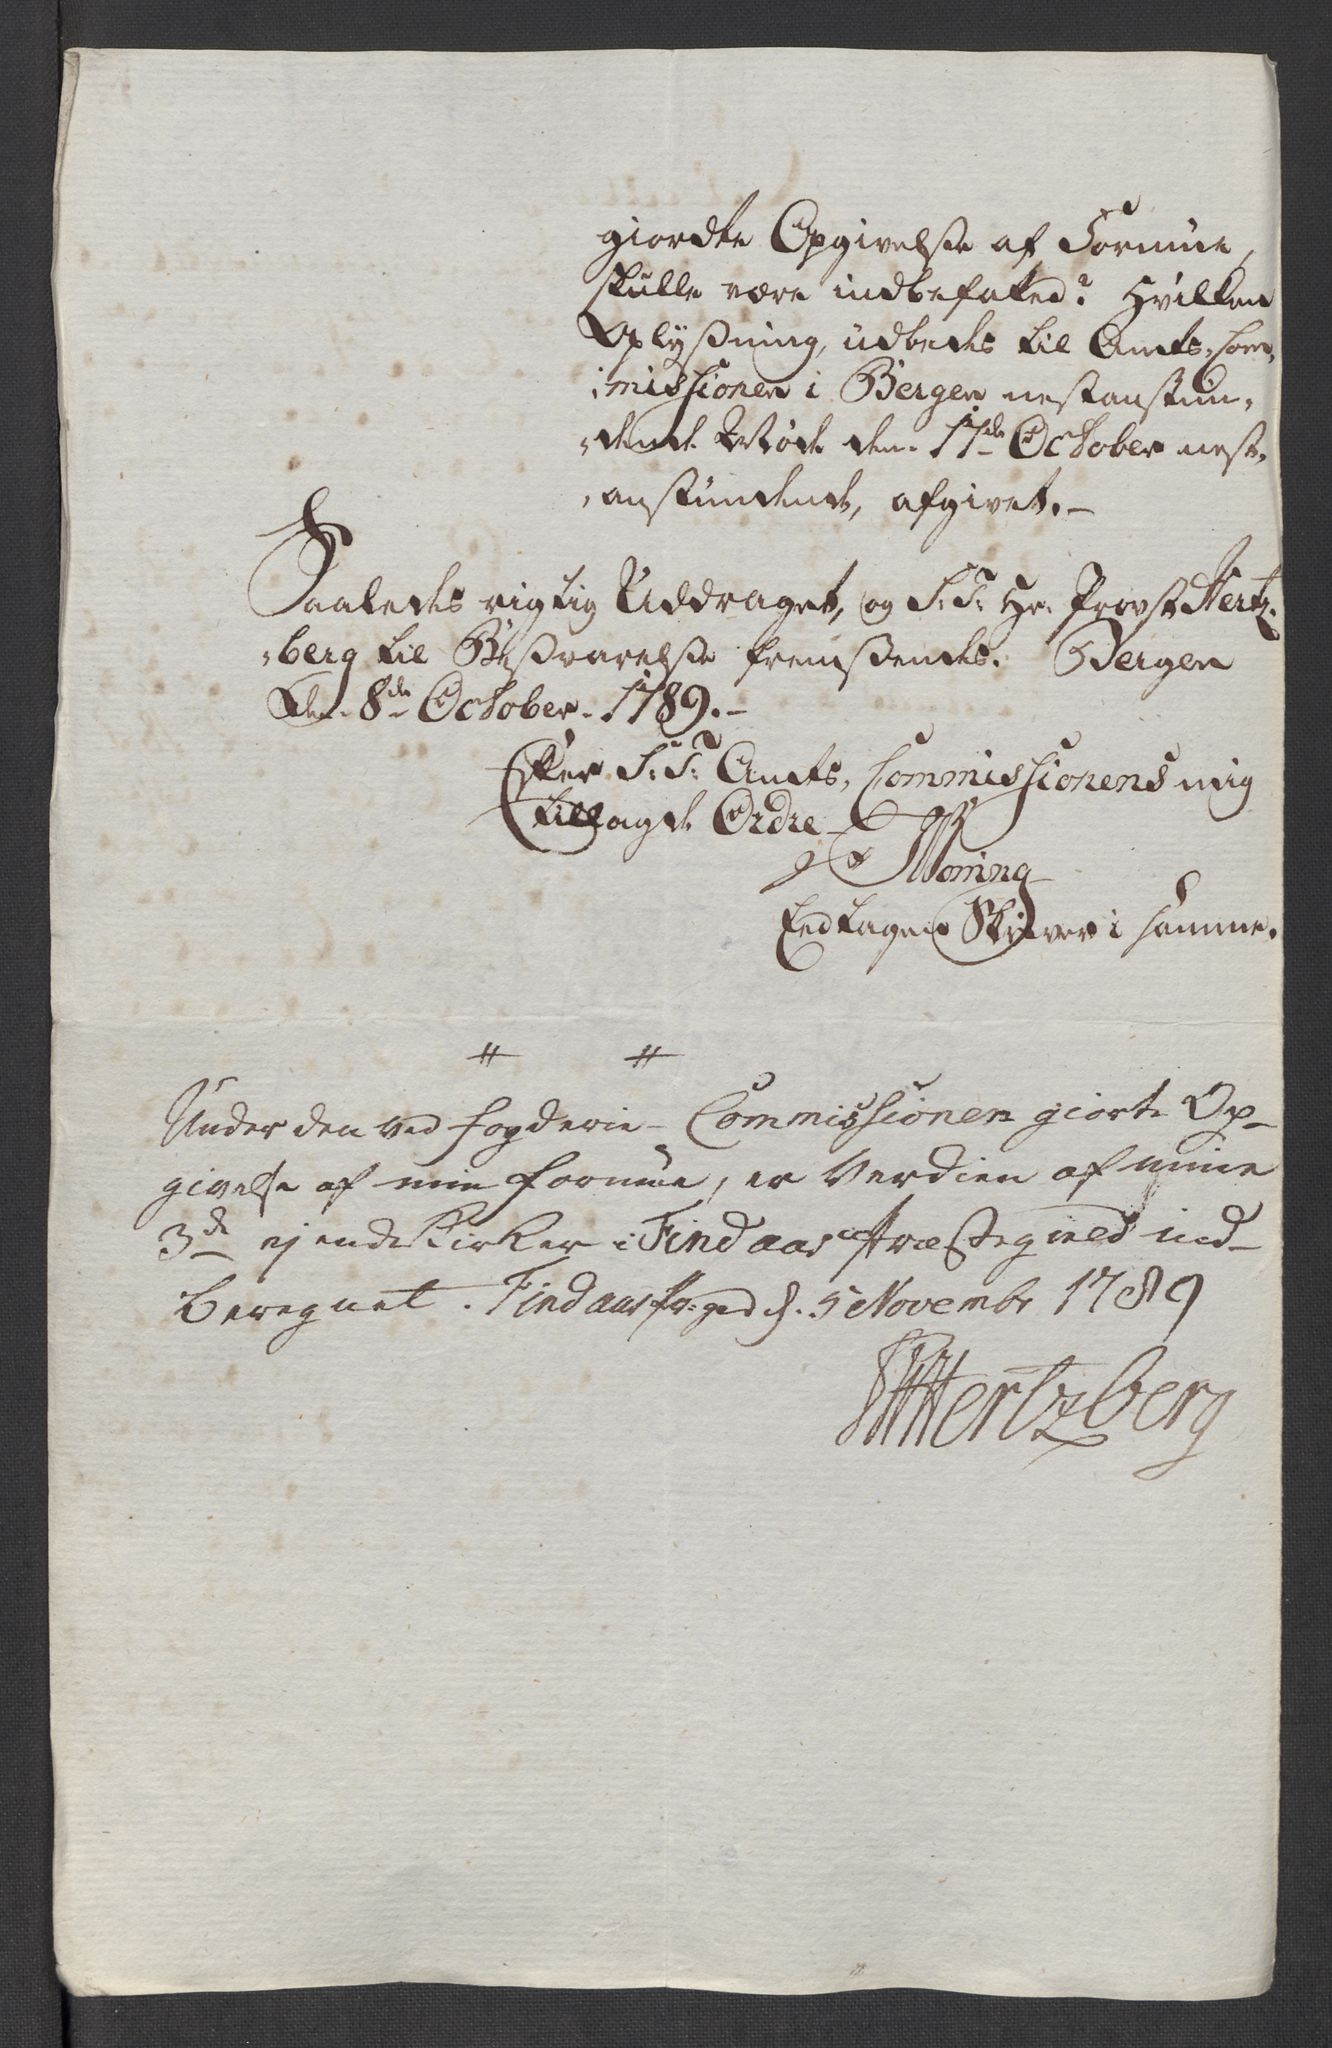 giordte Opgivelse af Formue,
skulle være indbefatted? Hvilken
Oplysning, udbedes til Amts-Com-
missionen i Bergen nestanstun-
dende Møde den 17de October nest-
anstundende, afgivet.-
Saaledes rigtig Uddraget, og S: T: Hr. Provst Hertz-
berg til Besvarelse fremsendes. Bergen
Den 8de October 1789.-
Efter S: T: Amts-Commissionens mig
tillagde Ordre
Edtagen Skriver i samme.
Under den ved Fogderie-Commissionen giorte Op-
givelse af min Formue, er Verdien af mine
3de ejende Kirker i Findaas Præstegield ind-
beregnet. Findaas Pr:gd d. 5 Novembr 1789
Hertzberg